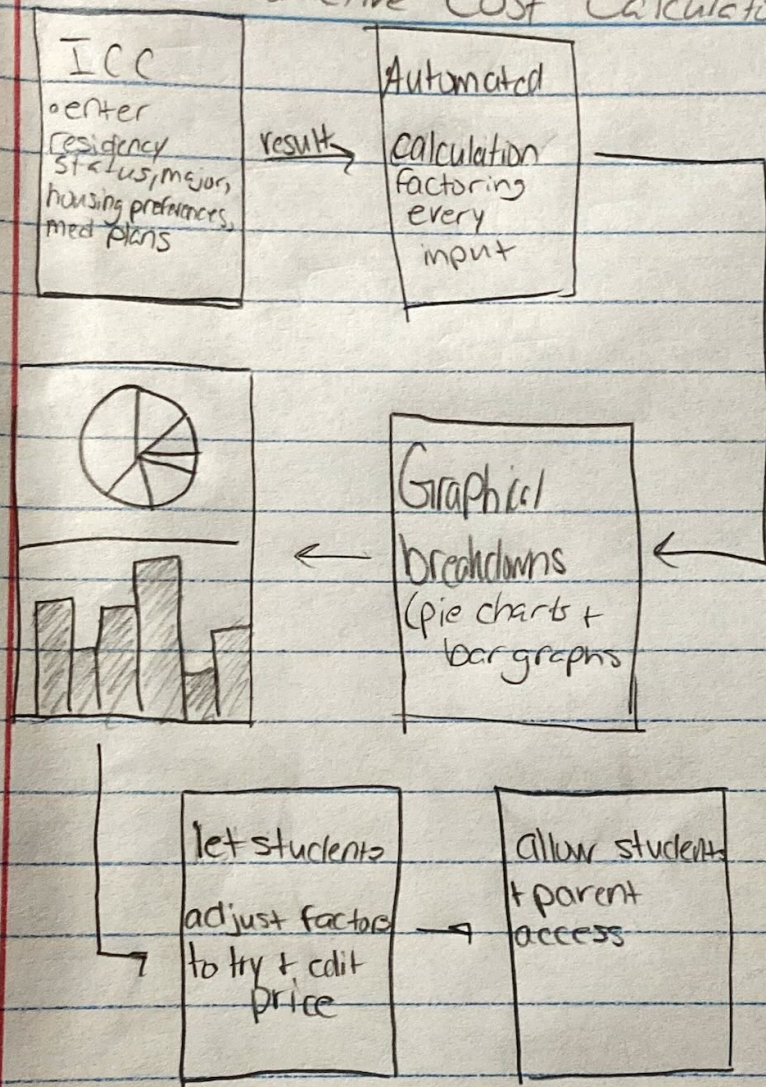 Cost Calculati
ICC
enter
residency
status, major,
housing preferences,
med plans
result
Automated
calculation
factoring
every
input
Graphical
breakdowns
(pie charts +
bar graphs
let students
adjust factors
to try + edit
price
allow students
+ parent
access